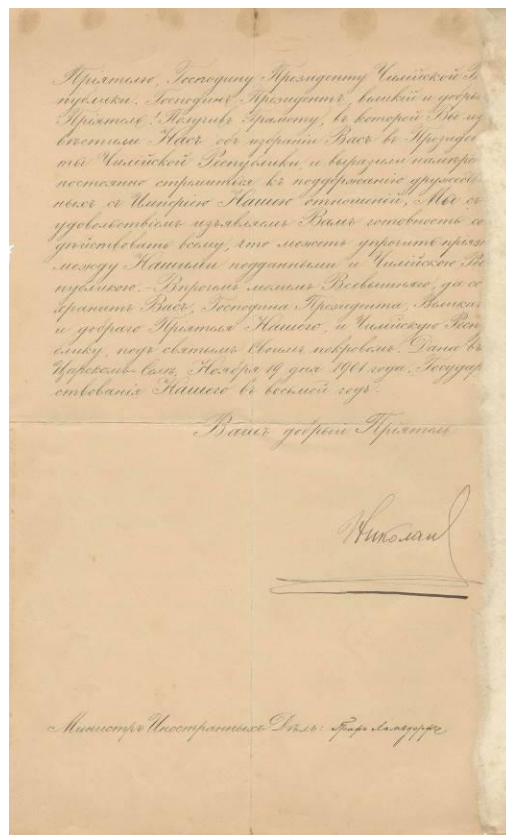 Пріятелю, Господину Президенту Чилійской Р
публики. Господинъ Президентъ, великій и добры
Пріятель! Получивъ Грамоту, въ которой Вы из
вѣстили Насъ объ избраніи Васъ въ Президен
ты Чилійской Республики, и выразили намѣре
постоянно стремиться къ поддержанію дружест
ныхъ съ Имперіею Нашею отношеній, Мы съ
удовольствіемъ изъявляемъ Вамъ готовность со
дѣйствовать всему, что можетъ упрочить пріяз
между Нашими подданными и Чилійскою Рес
публикою. Впрочемъ молимъ Всевышняго, да со
хранитъ Васъ, Господина Президента, Велика
и добраго Пріятеля Нашего, и Чилійскую Респ
блику, подъ святымъ Своимъ покровомъ. Дана въ
Царскомъ-Селѣ, Ноября 19 дня 1901 года. Государ
ствованія Нашего въ восьмой годъ.
Вашъ добрый Пріятель
Николай
Министръ Иностранныхъ Дѣлъ: Графъ Ламздорфъ